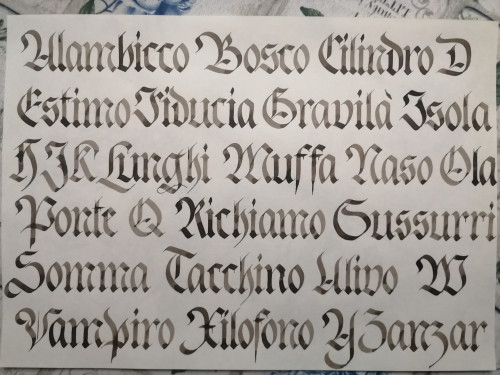 Alambicco Bosco Cilindro D
Estimo Fiducia Gravità Isola
H J K Lunghi Muffa Naso Ola
Ponte Q Richiamo Sussurri
Somma Tacchino Ulivo W
Vampiro Xilofono Y Zanzar